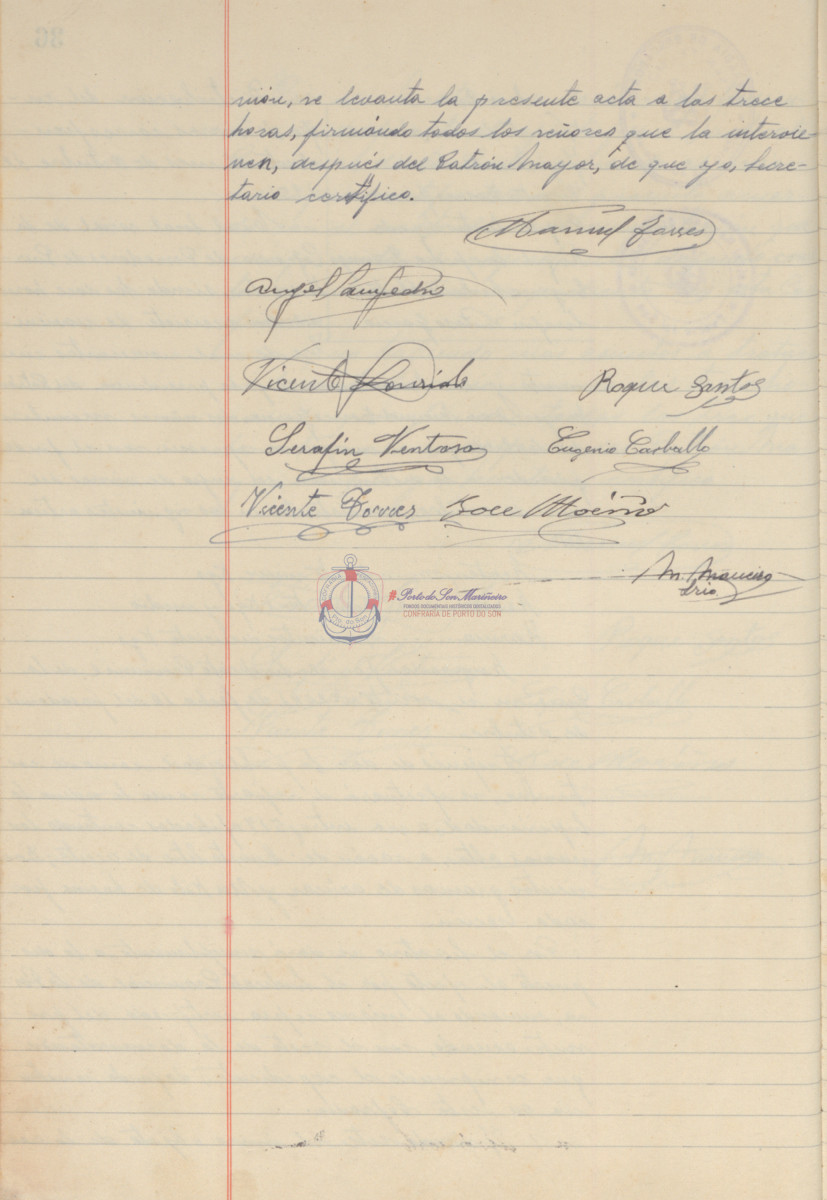 nión, se levanta la presente acta a las trece
horas, firmándo todos los señores que la intervie-
nen, después del Patrón Mayor, de que yo, Secre-
tario certifico.
Manuel Torres
Angel Sampedro
Vicente
Roque Santos
Serafín Ventoso
Eugenio Carballo
Vicente Torres
Jose Moéño
M. Maneiro
Srio
#Porto do Son Mariñeiro
FONDOS DOCUMENTAIS HISTÓRICOS DIXITALIZADOS
CONFRARÍA DE PORTO DO SON